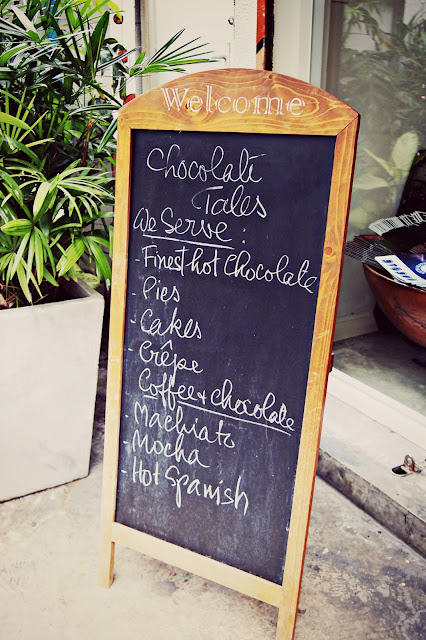 Welcome
Chocolati
Tales
We Serve :
- Finest hot Chocolate
- Pies
- Cakes
- Crêpe
Coffee + chocolate
- Machiato
- Mocha
- Hot Spanish